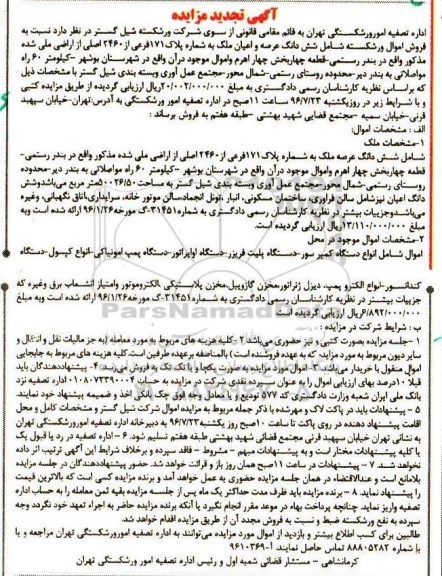 آگهی تجدید مزایده
اداره تصفیه امورورشکستگی تهران به قائم مقامی قانونی از سوی شرکت ورشکسته شیل گستر در نظر دارد نسبت به
فروش اموال ورشکسته شامل شش دانگ عرصه و اعیان ملک به شماره پلاک ۱۷۱فرعی از۲۴۶۰ اصلی از اراضی ملی شده
مذکور واقع در بندر رستمی-قطعه چهاربخش چهار اهرم واموال موجود درآن واقع در شهرستان بوشهر -کیلومتر ۶۰ راه
مواصلاتی به بندر دیر-محدوده روستای رستمی-شمال محور-مجتمع عمل آوری وبسته بندی شیل گستر با مشخصات ذیل
که براساس نظریه کارشناسان رسمی دادگستری به مبلغ ۲۰/۰۰۲/۰۰۰/۰۰۰ریال ارزیابی گردیده از طریق مزایده کتبی
و با شرایط زیر در روزیکشنبه ۹۶/۷/۲۳ ساعت ۱۱صبح در اداره تصفیه امور ورشکستگی به آدرس:تهران-خیابان سپهبد
قرنی-خیابان سمیه -مجتمع قضایی شهید بهشتی -طبقه هفتم به فروش برساند :
الف : مشخصات اموال:
۱-مشخصات ملک
شامل شش دانگ عرصه ملک به شماره پلاک ۱۷۱فرعی از۲۴۶۰ اصلی از اراضی ملی شده مذکور واقع در بندر رستمی-
قطعه چهاربخش چهار اهرم واموال موجود درآن واقع در شهرستان بوشهر -کیلومتر ۶۰ راه مواصلاتی به بندر دیر-محدوده
روستای رستمی-شمال محور-مجتمع عمل آوری وبسته بندی شیل گستر به مساحت ۵۰۰۲۶/۵۰متر مربع می‌باشدوشش
دانگ اعیان نیزشامل سالن فراوری،ساختمان مسکونی، انبار ،تونل انجمادسالن موتور خانه، سرایداری‌اتاق نگهبانی، وغیره
می‌باشدوجزییات بیشتر در نظریه کارشناسان رسمی دادگستری به شماره ۳۱۴۵۱-گ مورخه ۹۶/۱/۲۶ ارائه شده است وبه
مبلغ ۱۳/۱۱۰/۰۰۰/۰۰۰ ریال ارزیابی گردیده است.
۲-مشخصات اموال موجود در محل
اموال شامل انواع دستگاه کمپر سور-دستگاه پلیت فریزر-دستگاه اواپراتور-دستگاه پمپ امونیاکی-انواع کپسول-دستگاه
کندانسور-انواع الکترو پمپ، دیزل ژنراتور،مخزن گازوییل،مخزن پلاستیکی ،الکتروموتور وامتیاز انشعاب برق وغیره که
جزییات بیشتر در نظریه کارشناسان رسمی دادگستری به شماره ۳۱۴۵۱-گ مورخه ۹۶/۱/۲۶ ارائه شده است وبه مبلغ
۶/۸۹۲/۰۰۰/۰۰۰ریال ارزیابی گردیده است
ب : شرایط شرکت در مزایده :
۱ -جلسه مزایده بصورت کتبی و نیز حضوری می‌باشد ۲ -کلیه هزینه های مربوط به مورد معامله (به جز مالیات نقل و انتقال و
سایر دیون مربوط به مورد مزایده، که به عهده فروشنده است ) بالمناصفه برعهده طرفین است.کلیه هزینه های مربوط به جابجایی
اموال منقول با خریدار می‌باشد ۳-اموال مورد مزایده به صورت یکجا و یا تک تک به فروش می‌رسد ۴- پیشنهاددهندگان باید
قبلا ۱۰درصد بهای ارزیابی اموال را به عنوان سپرده نقدی شرکت در مزایده به حساب ۰۱۰۸۰۷۳۳۹۰۰۴ اداره تصفیه نزد
بانک ملی ایران شعبه وزارت دادگستری کد ۵۷۷ تودیع و یا معادل مبلغ فوق چک بانکی اخذ و ضمیمه پیشنهاد خود نمایند.
۵ -پیشنهادات باید در پاکت لاک و مهرشده با ذکر جمله مربوط به مزایده اموال شرکت شیل گستر و مشخصات کامل و محل
اقامت پیشنهاد دهنده در روی پاکت تا ساعت ۱۰صبح روز یکشنبه ۹۶/۷/۲۳ به دبیرخانه اداره تصفیه امورورشکستگی تهران
به نشانی تهران خیابان سپهبد قرنی مجتمع قضائی شهید بهشتی طبقه هفتم تسلیم شود. ۶ -اداره تصفیه در رد یا قبول یک
یا کلیه پیشنهادات مختار است و به پیشنهادات مبهم - مشروط - فاقد سپرده و برخلاف شرایط این آگهی ترتیب اثر داده
نخواهد شد. ۷ - پیشنهادات در ساعت ۱۱صبح همان روز باز و قرائت خواهد شد. حضور پیشنهاددهندگان در جلسه مزایده
بلامانع است و عندالاقتضاء در همان جلسه مزایده حضوری به عمل خواهد آمد و برنده مزایده کسی است که بالاترین قیمت
را پیشنهاد نماید. ۸ - برنده مزایده باید ظرف مدت حداکثر یک ماه پس از جلسه مزایده بقیه ثمن معامله را به حساب اداره
تصفیه واریز نماید. چنانچه پرداخت بهاء در موعد مقرر انجام نگیرد یا آنکه برنده مزایده حاضر به اجراء تعهد خود نگردد وجه
سپرده به نفع ورشکسته ضبط و نسبت به فروش مجدد آن از طریق مزایده اقدام خواهد شد.
طالبین برای کسب اطلاع بیشتر و بازدید از اموال مورد مزایده می‌توانند به اداره تصفیه امورورشکستگی تهران مراجعه و یا
با شماره ۸۸۸۰۵۲۸۲ تماس حاصل نمایند. آ-۹۶۱۰۳۶۹
کرمانشاهی - مستشار قضائی شعبه اول و رئیس اداره تصفیه امور ورشکستگی تهران
ParsNamadData